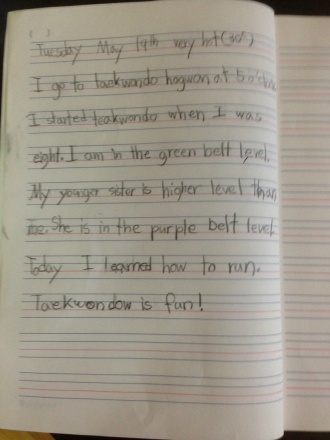 Tuesday May 19th very hot (30°)
I go to taekwondo hagwon at 5 o'clock
I started teakwondo when I was
eight. I am in the green belt level.
My younger sister is higher level than
me. She is in the purple belt level.
Today I learned how to run.
Taekwondow is fun!